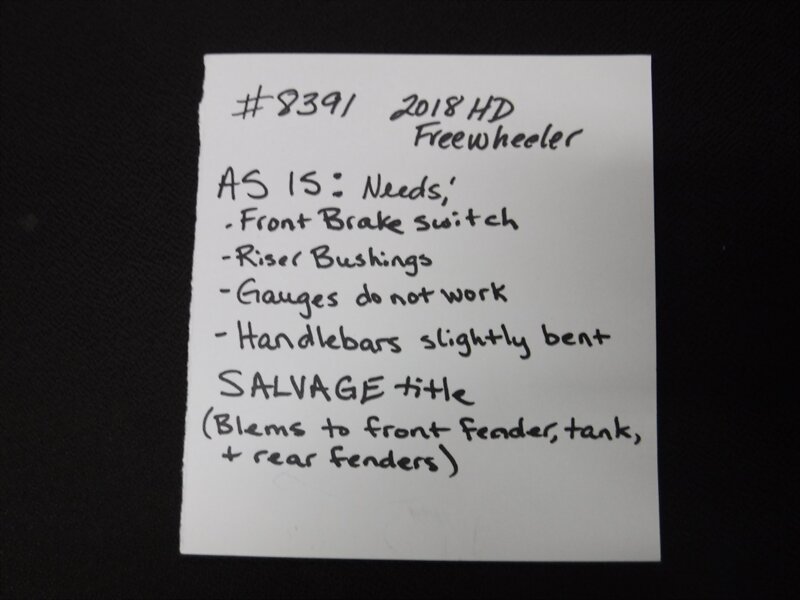 #8391 2018 HD
Freewheeler
AS IS: Needs;
- Front Brake switch
- Riser Bushings
- Gauges do not work
- Handlebars slightly bent
SALVAGE title
(Blems to front fender, tank,
+ rear fenders)